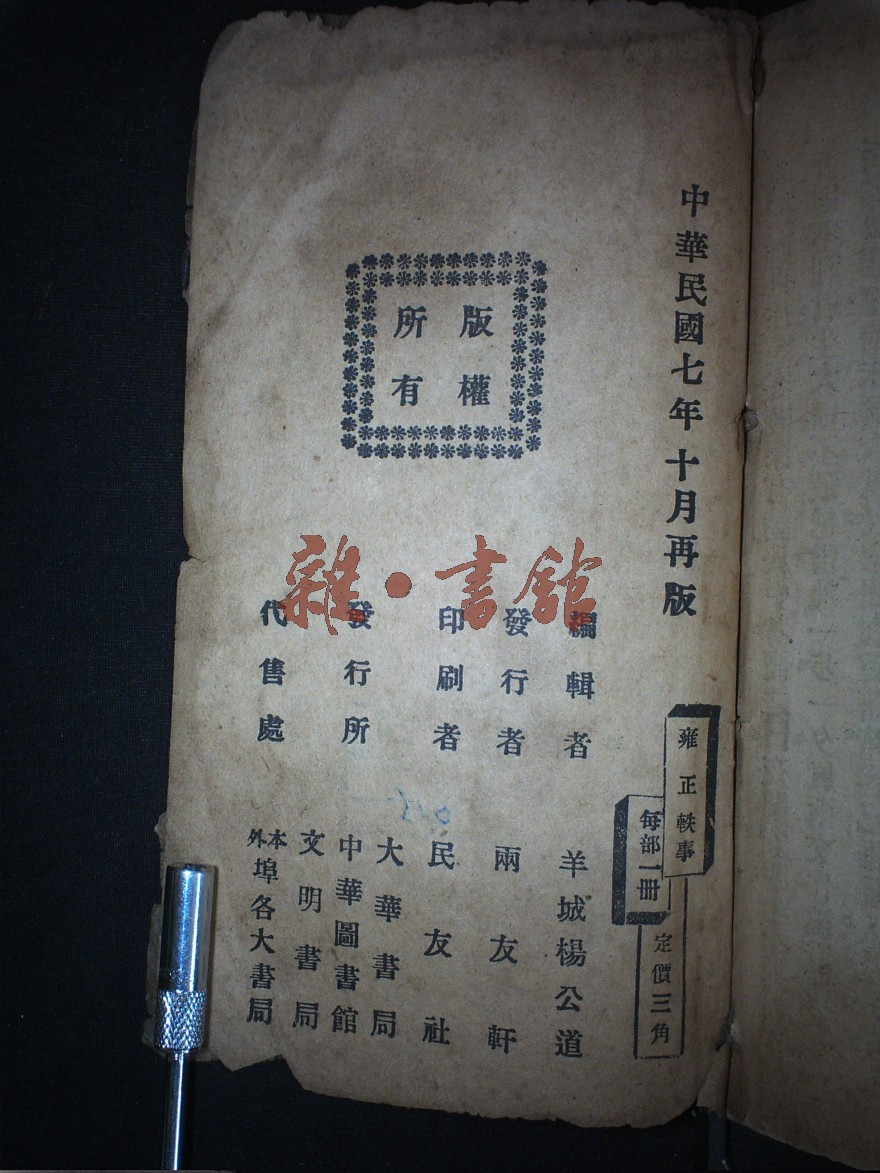 中華民國七年十月再版
雍正軼事
每部一冊
定價三角
版權
所有
編輯者 羊城楊公道
發行者 兩友軒
印刷者 民友社
發行所 大華書局
中華圖書館
文明書局
代售處 本外埠各大書局
雜·書館